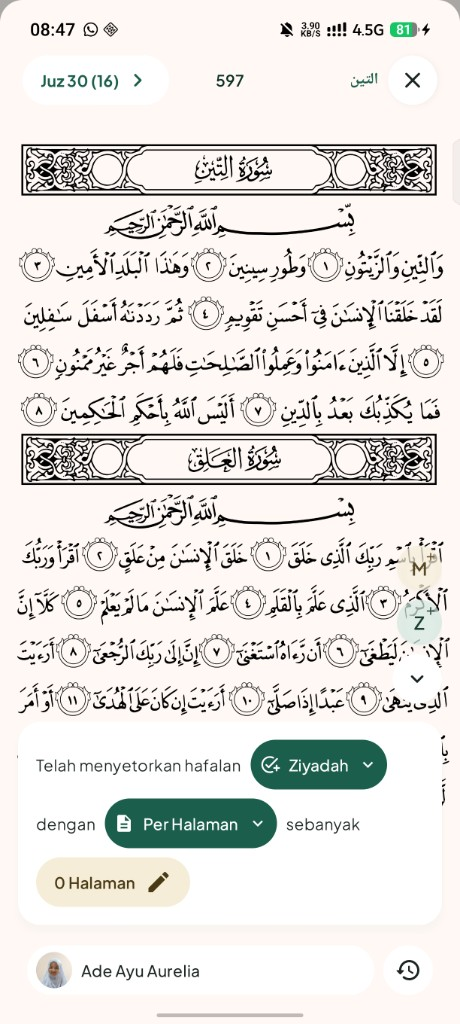 08:47
3.90 KB/S 4.5G 81
Juz 30 (16)
597
التين
سُورَةُ التِّينِ
بِسْمِ اللَّهِ الرَّحْمَٰنِ الرَّحِيمِ
وَالتِّينِ وَالزَّيْتُونِ ١ وَطُورِ سِينِينَ ٢ وَهَٰذَا الْبَلَدِ الْأَمِينِ ٣
لَقَدْ خَلَقْنَا الْإِنسَٰنَ فِىٓ أَحْسَنِ تَقْوِيمٍ ٤ ثُمَّ رَدَدْنَٰهُ أَسْفَلَ سَٰفِلِينَ
٥ إِلَّا الَّذِينَ ءَامَنُوا۟ وَعَمِلُوا۟ الصَّٰلِحَٰتِ فَلَهُمْ أَجْرٌ غَيْرُ مَمْنُونٍ ٦
فَمَا يُكَذِّبُكَ بَعْدُ بِالدِّينِ ٧ أَلَيْسَ اللَّهُ بِأَحْكَمِ الْحَٰكِمِينَ ٨
سُورَةُ العَلَقِ
بِسْمِ اللَّهِ الرَّحْمَٰنِ الرَّحِيمِ
اقْرَأْ بِاسْمِ رَبِّكَ الَّذِى خَلَقَ ١ خَلَقَ الْإِنسَٰنَ مِنْ عَلَقٍ ٢ اقْرَأْ وَرَبُّكَ
الْأَكْرَمُ ٣ الَّذِى عَلَّمَ بِالْقَلَمِ ٤ عَلَّمَ الْإِنسَٰنَ مَا لَمْ يَعْلَمْ ٥ كَلَّآ إِنَّ
الْإِنسَٰنَ لَيَطْغَىٰٓ ٦ أَن رَّءَاهُ اسْتَغْنَىٰٓ ٧ إِنَّ إِلَىٰ رَبِّكَ الرُّجْعَىٰٓ ٨ أَرَءَيْتَ
الَّذِى يَنْهَىٰ ٩ عَبْدًا إِذَا صَلَّىٰٓ ١٠ أَرَءَيْتَ إِن كَانَ عَلَى الْهُدَىٰٓ ١١ أَوْ أَمَرَ
M+
Z+
Telah menyetorkan hafalan Ziyadah
dengan Per Halaman sebanyak
0 Halaman
Ade Ayu Aurelia